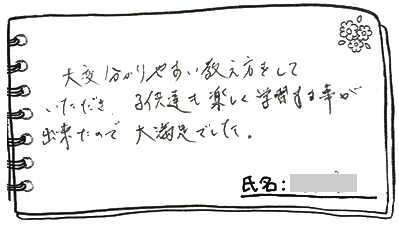 大変分かりやすい教え方をして
いただき、子供達も楽しく学習する事が
出来たので大満足でした。
氏名: